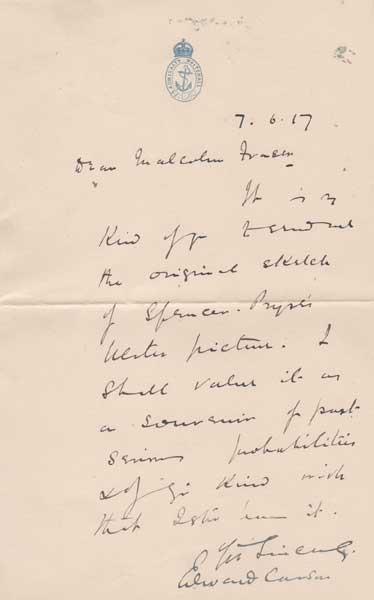 ADMIRALTY WHITEHALL
7. 6. 17
Dear Malcolm Fraser
It is v
Kind of yr to send me
the original sketch
of Spencer-Pryse's
Ulster picture. I
shall value it as
a souvenir of past
serious probabilities
& of yr kind wish
that I shd have it.
Yrs Sincerely
Edward Carson